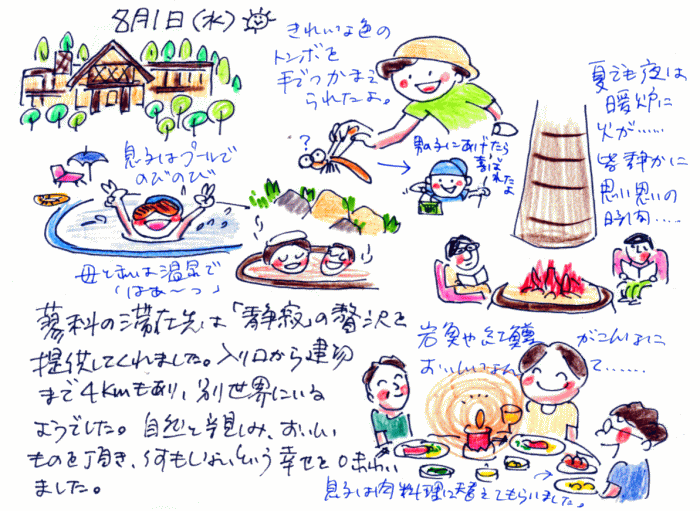 8月1日(水)
きれいな色の
トンボを
手でつかまえ
られたよ。
?
男の子にあげたら
喜ばれたよ
夏でも夜は
暖炉に
火が……
皆静かに
思い思いの
時間……
息子はプールで
のびのび
母と私は温泉で
「はぁ〜っ」
蓼科の滞在先は「静寂」の贅沢を
提供してくれました。入り口から建物
まで4kmもあり、別世界にいる
ようでした。自然を楽しみ、おいしい
ものを頂き、することもないという幸せを味わい
ました。
岩魚や紅鱒がこんなに
おいしいなんて……
息子は肉料理に替えてもらいました。